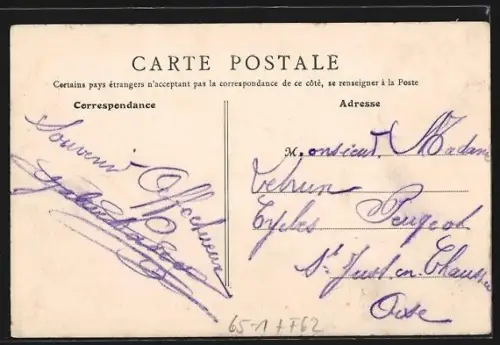 CARTE POSTALE
Certains pays étrangers n'acceptant pas la correspondance de ce côté, se renseigner à la Poste
Correspondance
Souvenir Affectueux
Adresse
Monsieur Madame
Lebrun
Cycles Peugeot
St Just en Chaussée
Oise
65-1